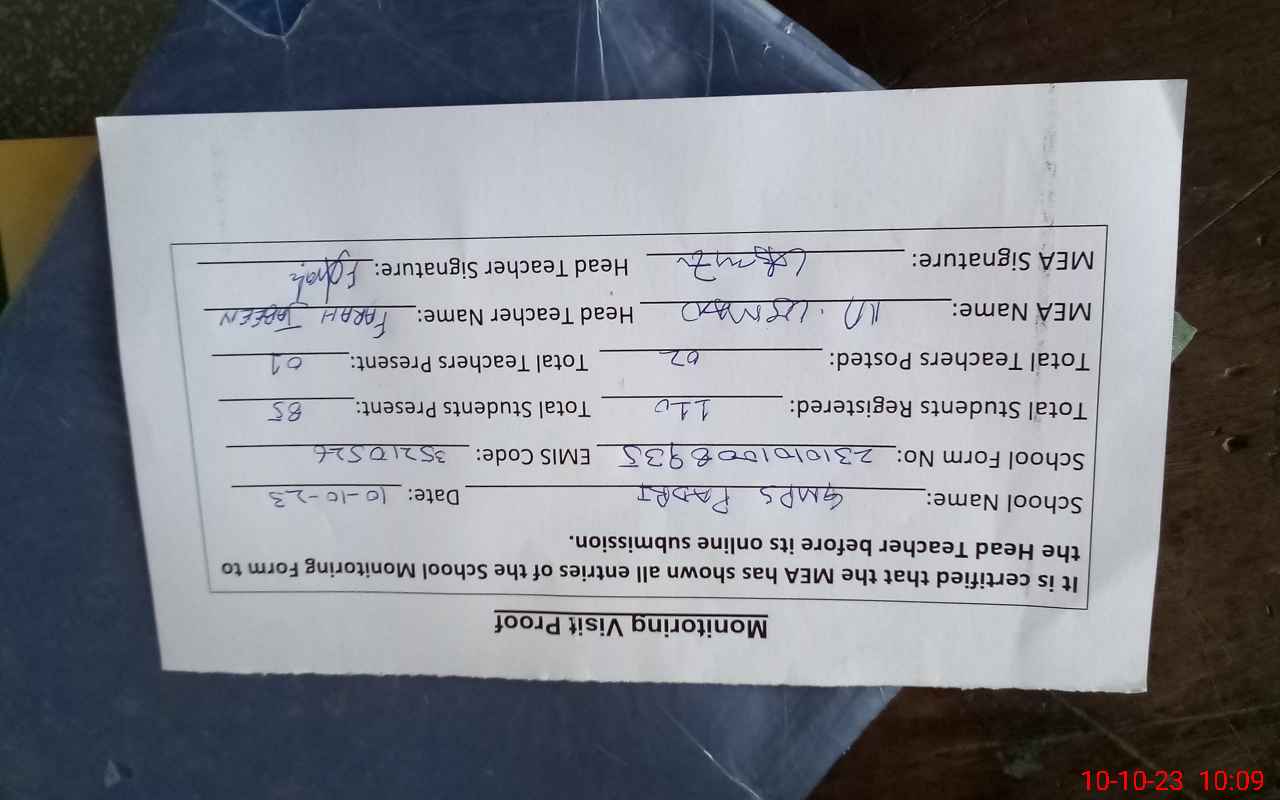 Monitoring Visit Proof
It is certified that the MEA has shown all entries of the School Monitoring Form to
the Head Teacher before its online submission.
School Name: GMPS PADRI Date: 10-10-23
School Form No: 2310101008935 EMIS Code: 35210526
Total Students Registered: 110 Total Students Present: 85
Total Teachers Posted: 02 Total Teachers Present: 01
MEA Name: M. USMAN Head Teacher Name: FARAH JABEEN
MEA Signature: Head Teacher Signature: Farah
10-10-23 10:09